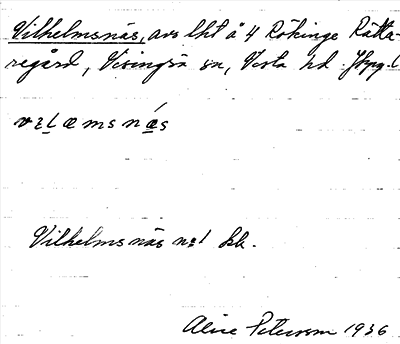 Vilhelmsnäs, avs lht å 4 Rökinge Rätta-
regård, Visingsö sn, Vista hd. Jkpg. l
Vilhelmsnäs n:1 Jb.
Alice Petersson 1936